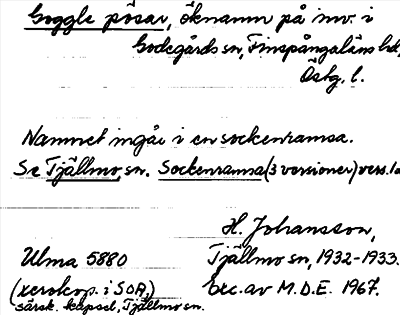 Goggle påsar, öknamn på inv. i
Godegårds sn, Finspångaläns hd,
Östg. l.
Namnet ingår i en sockenramsa.
Se Tjällmo sn. Sockenramsa (3 versioner) vers. 1a
H. Johansson,
Ulma 5880 Tjällmo sn, 1932-1933.
(xerokop. i SOA,) exc. av M.D.E. 1967.
särsk. kapsel, Tjällmo sn.